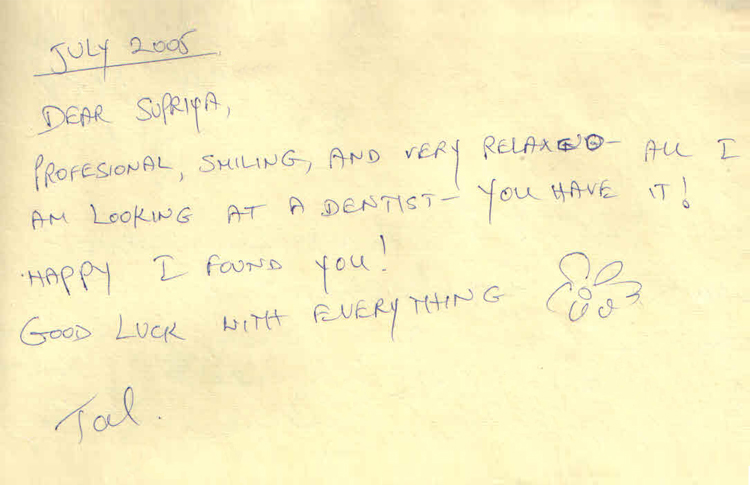 JULY 2005
DEAR SUPRIYA,
PROFESIONAL, SMILING, AND VERY RELAXED – ALL I
AM LOOKING AT A DENTIST – YOU HAVE IT!
HAPPY I FOUND YOU!
GOOD LUCK WITH EVERYTHING
Tal.